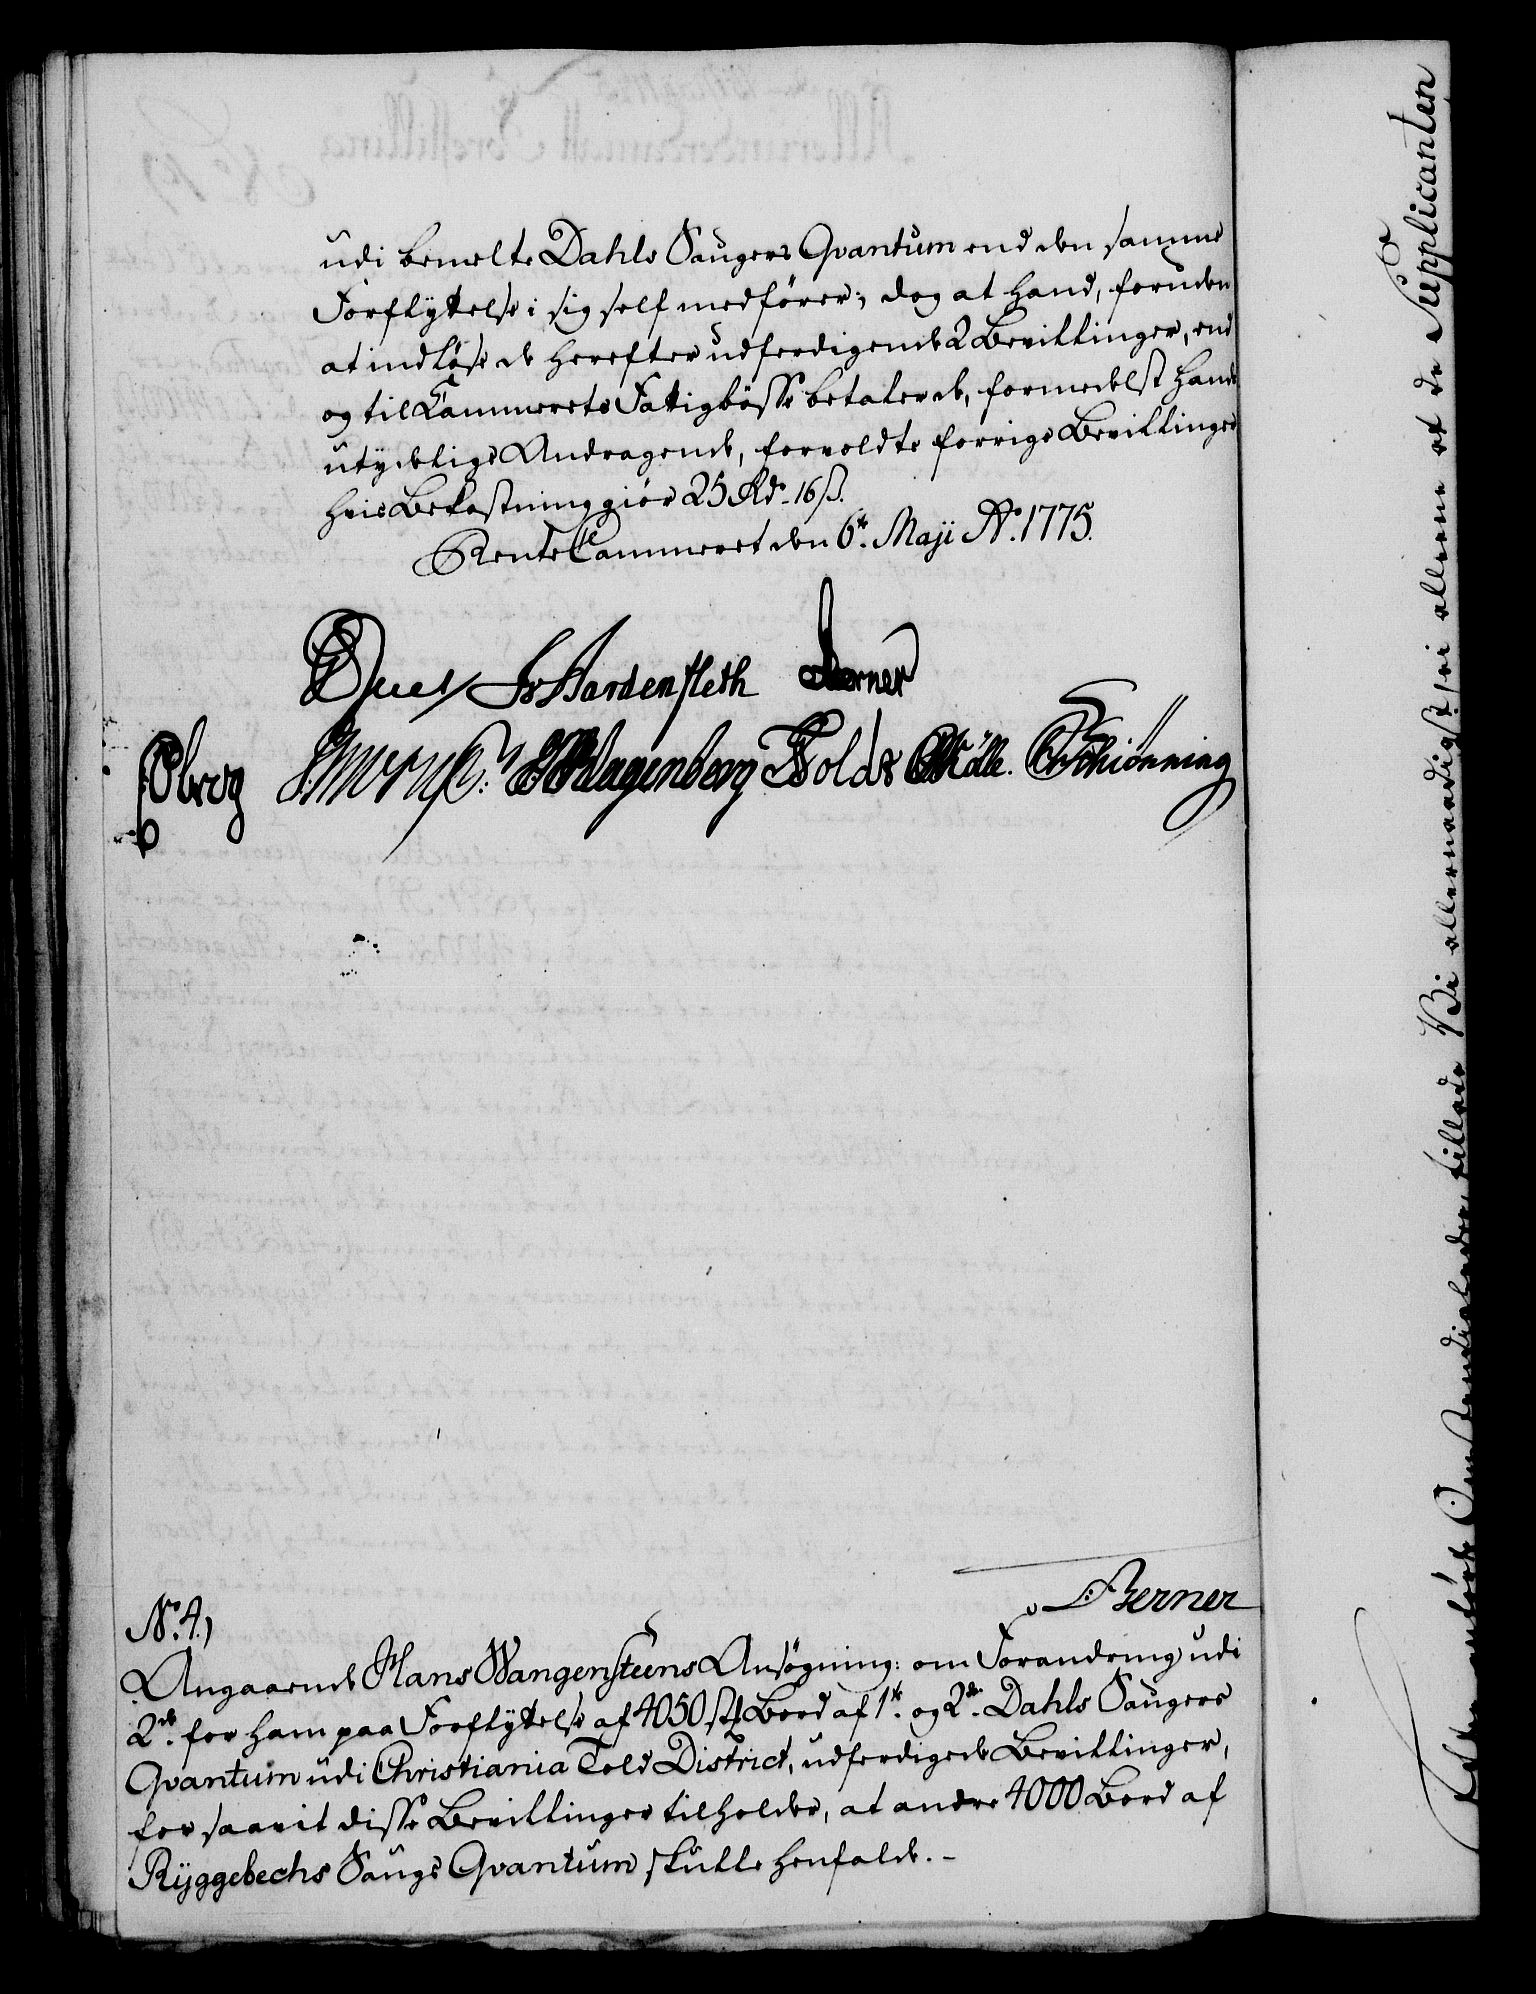 udi bemelte Dahls Saugers Qvantum end den samme
Forflÿttelse i sig self medfører; dog at hand, foruden
at indløse de herefter udferdigende 2 Bevillinger, end
og til Cammerets Fattigbøsse betaler de, formedelst hans
utydelige Andragende, forvoldte forrige Bevillinger
hvis Bekostning giør 25 Rd. 16 ß.
RenteCammeret den 6te Maji Ao. 1775.
Juel FvHardenfleth Berner
Obroy Klagenberg Holdt Mølle. Schiønning
Berner
No. 4.)
Angaaende Hans Wangensteens Ansøgning: om Forandring udi
2de for ham paa Forflÿttelse af 4050 st. Bord af 1te og 2de Dahls Saugers
Qvantum udi Christiania Told District, udferdigede Bevillinger,
for saavit disse Bevillinger tilholder, at andre 4000 Bord af
Rÿggebechs Saugs Qvantum skulle henfalde. -
anført Omstændigheder, tillade Vi allernaadigst, at de Supplicanten